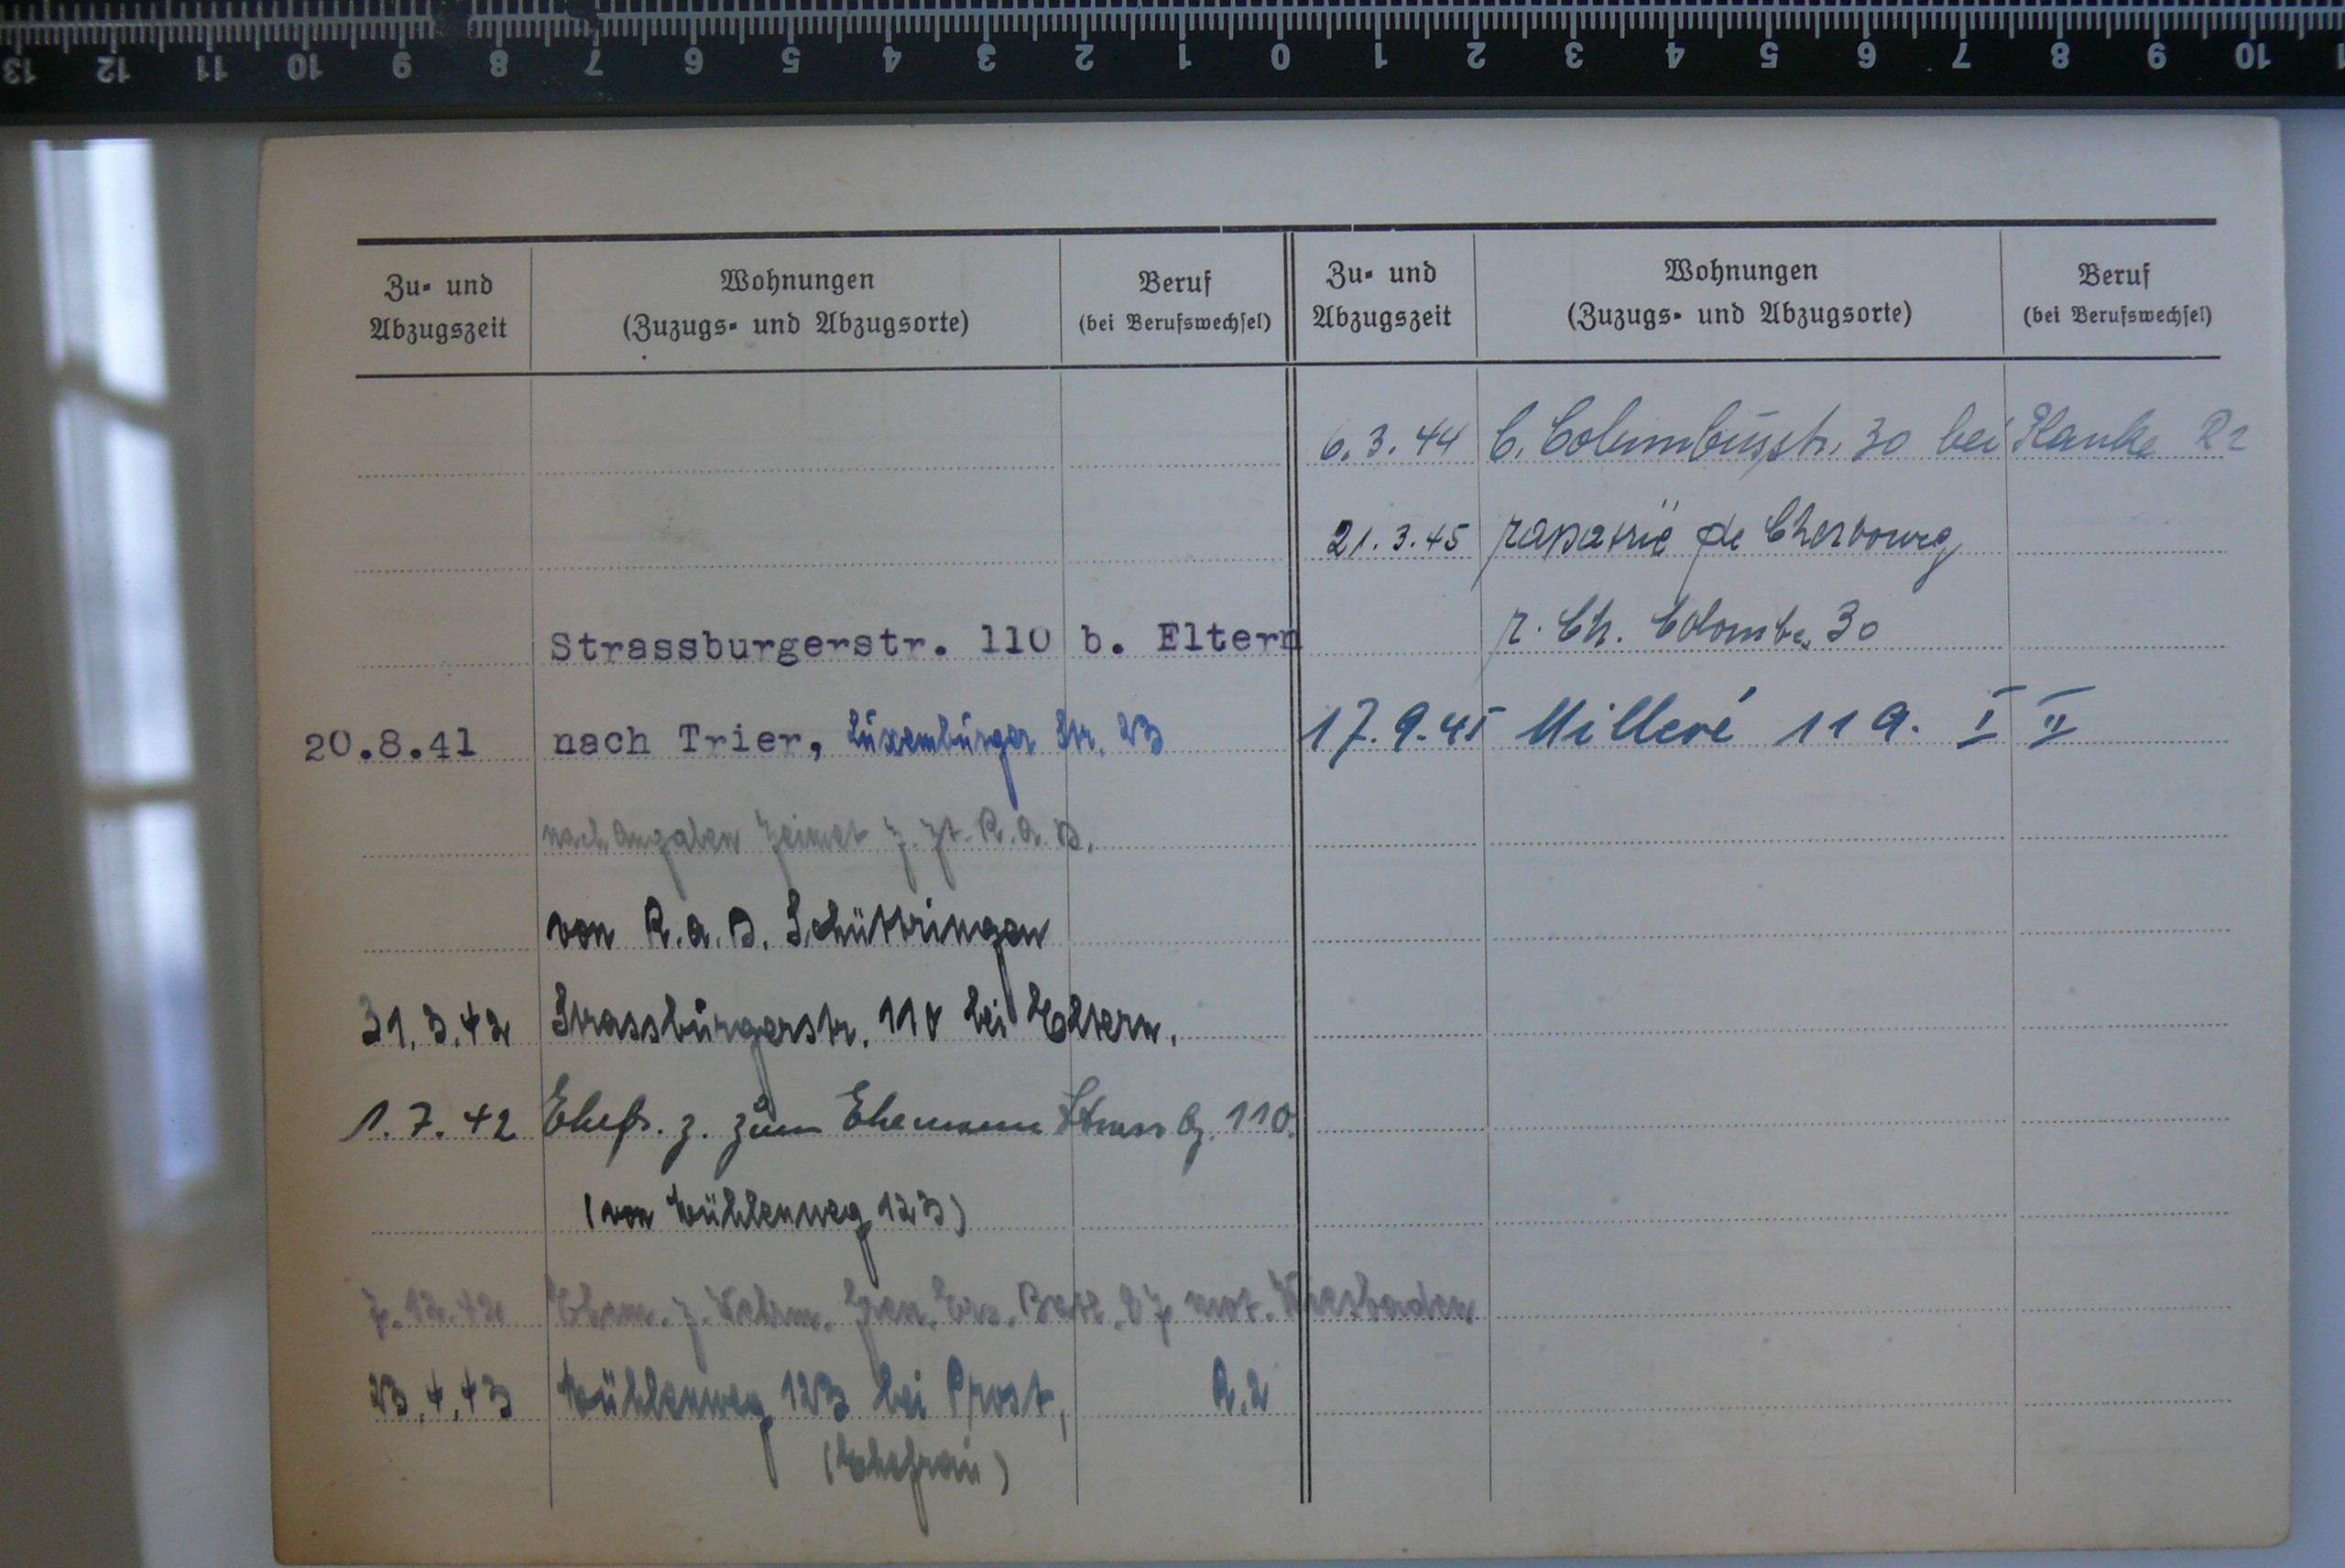 13 12 11 10 9 8 7 6 5 4 3 2 1 0 1 2 3 4 5 6 7 8 9 10
Zu- und Abzugszeit
Wohnungen
(Zuzugs- und Abzugsorte)
Beruf
(bei Berufswechsel)
Strassburgerstr. 110 b. Eltern
20.8.41 nach Trier, Luxemburger Str. 23
nach Angaben z. Zt. R.A.D.
von R.A.D. Schüttringen
31.3.42 Strassburgerstr. 110 bei Eltern.
1.7.42 Ehefr. z. zum Ehemann Strassbg. 110.
(von Mühlenweg 123)
7.12.42 Ehem. z. Wehrm. Gren. Ers. Batl. 87 mot. Wiesbaden
23.4.43 Mühlenweg 123 bei Prost, R.2
(Ehefrau)
Zu- und Abzugszeit
Wohnungen
(Zuzugs- und Abzugsorte)
Beruf
(bei Berufswechsel)
6.3.44 C. Columbusstr. 30 bei Planke R2
21.3.45 rapatrié de Cherbourg
r. Ch. Colombe 30
17.9.45 Milleré 119. I II